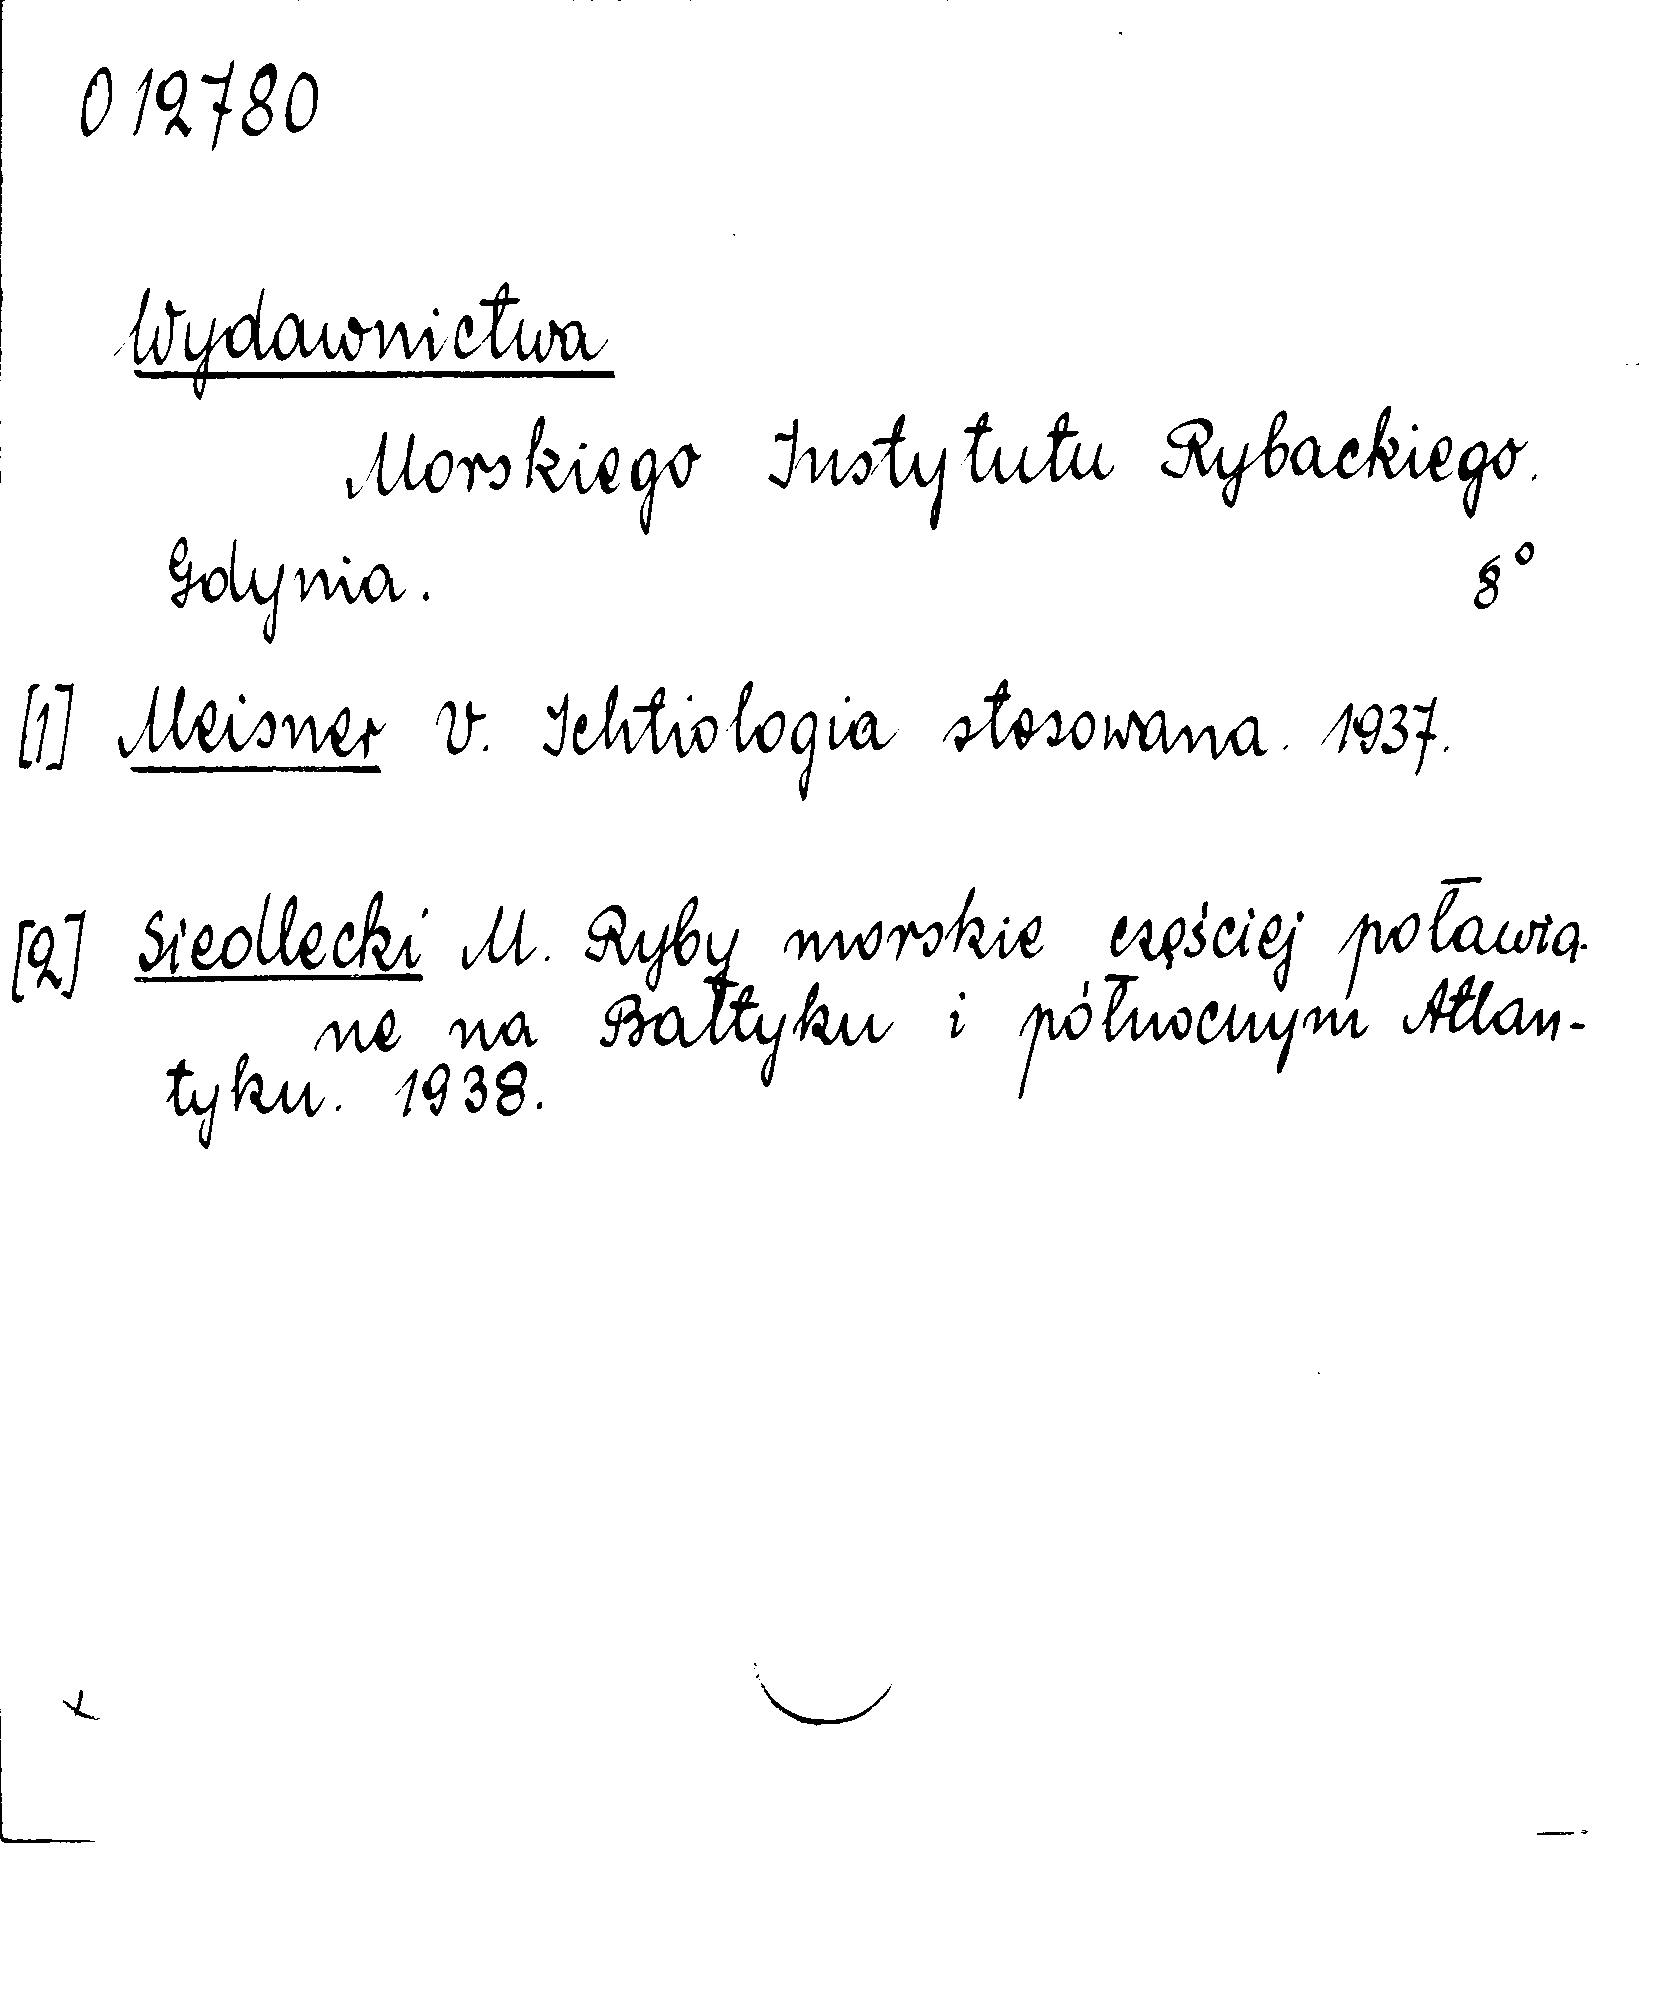 012780
Wydawnictwa
Morskiego Instytutu Rybackiego.
Gdynia. 8°
[1] Meisner V. Ichtiologia stosowana. 1937.
[2] Siedlecki M. Ryby morskie częściej poławia-
ne na Bałtyku i północnym Atlan-
tyku. 1938.